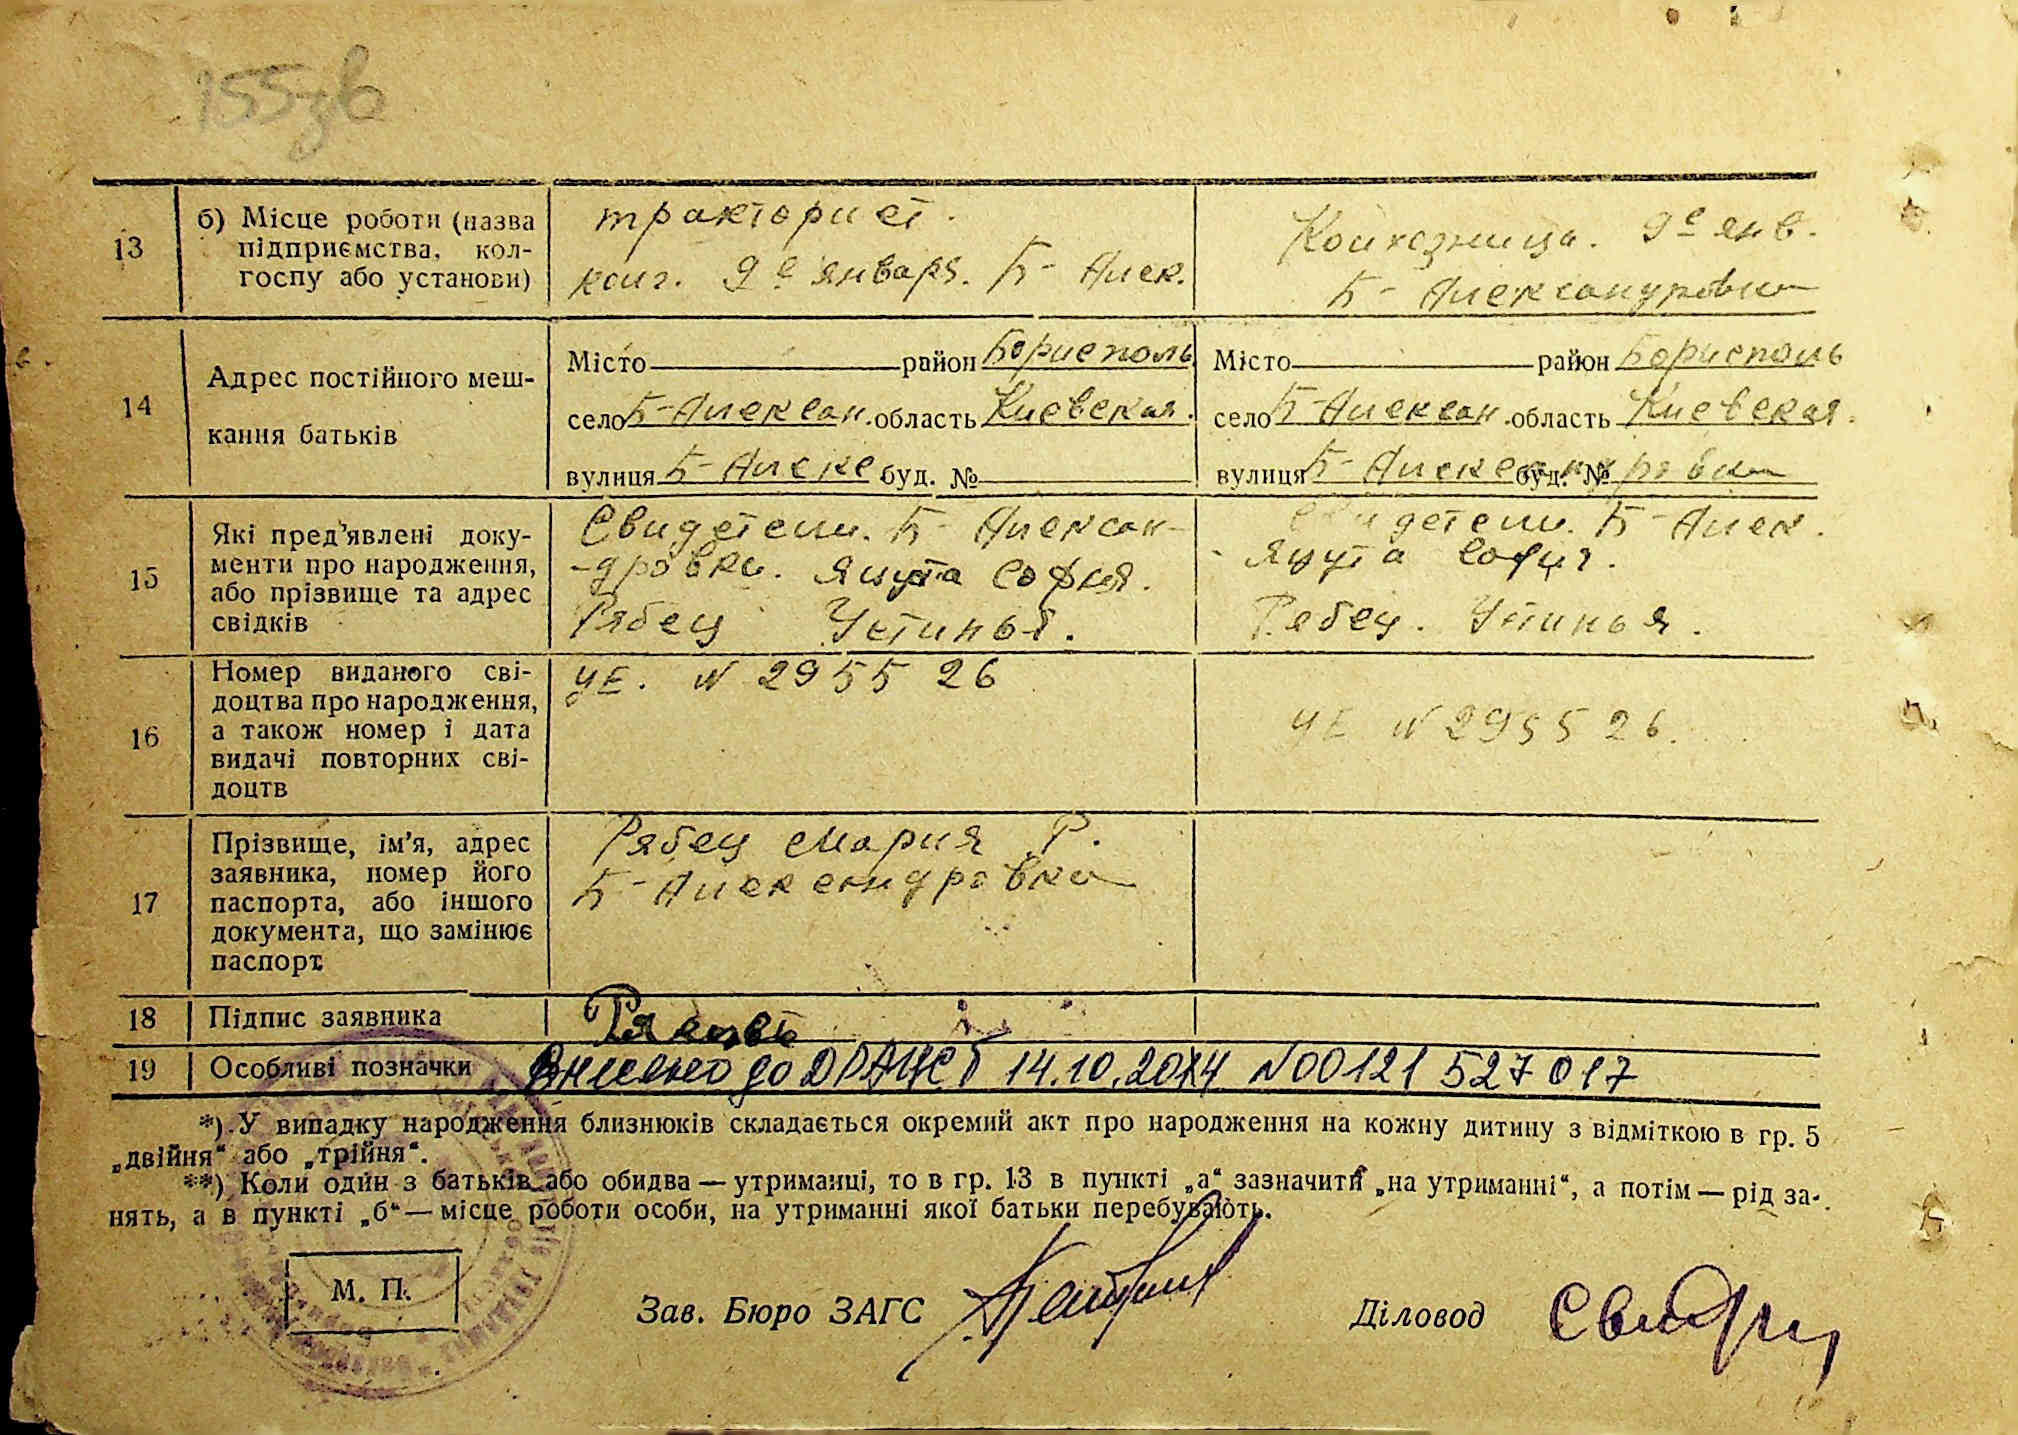 155зв
13
б) Місце роботи (назва
підприємства, кол-
госпу або установи)
тракторист.
колг. 9е января. Б-Алек.
Колхозница. 9е янв.
Б-Александровка
14
Адрес постійного меш-
кання батьків
Місто район Борисполь
село Б-Алексан. область Киевская.
вулиця Б-Алекс буд. №
Місто район Борисполь
село Б-Алексан. область Киевская.
вулиця Б-Александровка буд. №
15
Які пред'явлені доку-
менти про народження,
або прізвище та адрес
свідків
Свидетели. Б-Алексан-
-дровки. Яцута София.
Рябец Устинья.
Свидетели. Б-Алек.
Яцута София.
Рябец. Устинья.
16
Номер виданого сві-
доцтва про народження,
а також номер і дата
видачі повторних сві-
доцтв
УЕ. N 295526
УЕ N 295526.
17
Прізвище, ім'я, адрес
заявника, номер його
паспорта, або іншого
документа, що замінює
паспорт
Рябец Мария Р.
Б-Александровка
18
Підпис заявника
19
Особливі позначки
Внесено до ДРАЦСГ 14.10.2014 N00121527017
*) У випадку народження близнюків складається окремий акт про народження на кожну дитину з відміткою в гр. 5
„двійня“ або „трійня“.
**) Коли один з батьків або обидва — утриманці, то в гр. 13 в пункті „а“ зазначити „на утриманні“, а потім — рід за-
нять, а в пункті „б“ — місце роботи особи, на утриманні якої батьки перебувають.
М. П.
Зав. Бюро ЗАГС
Діловод